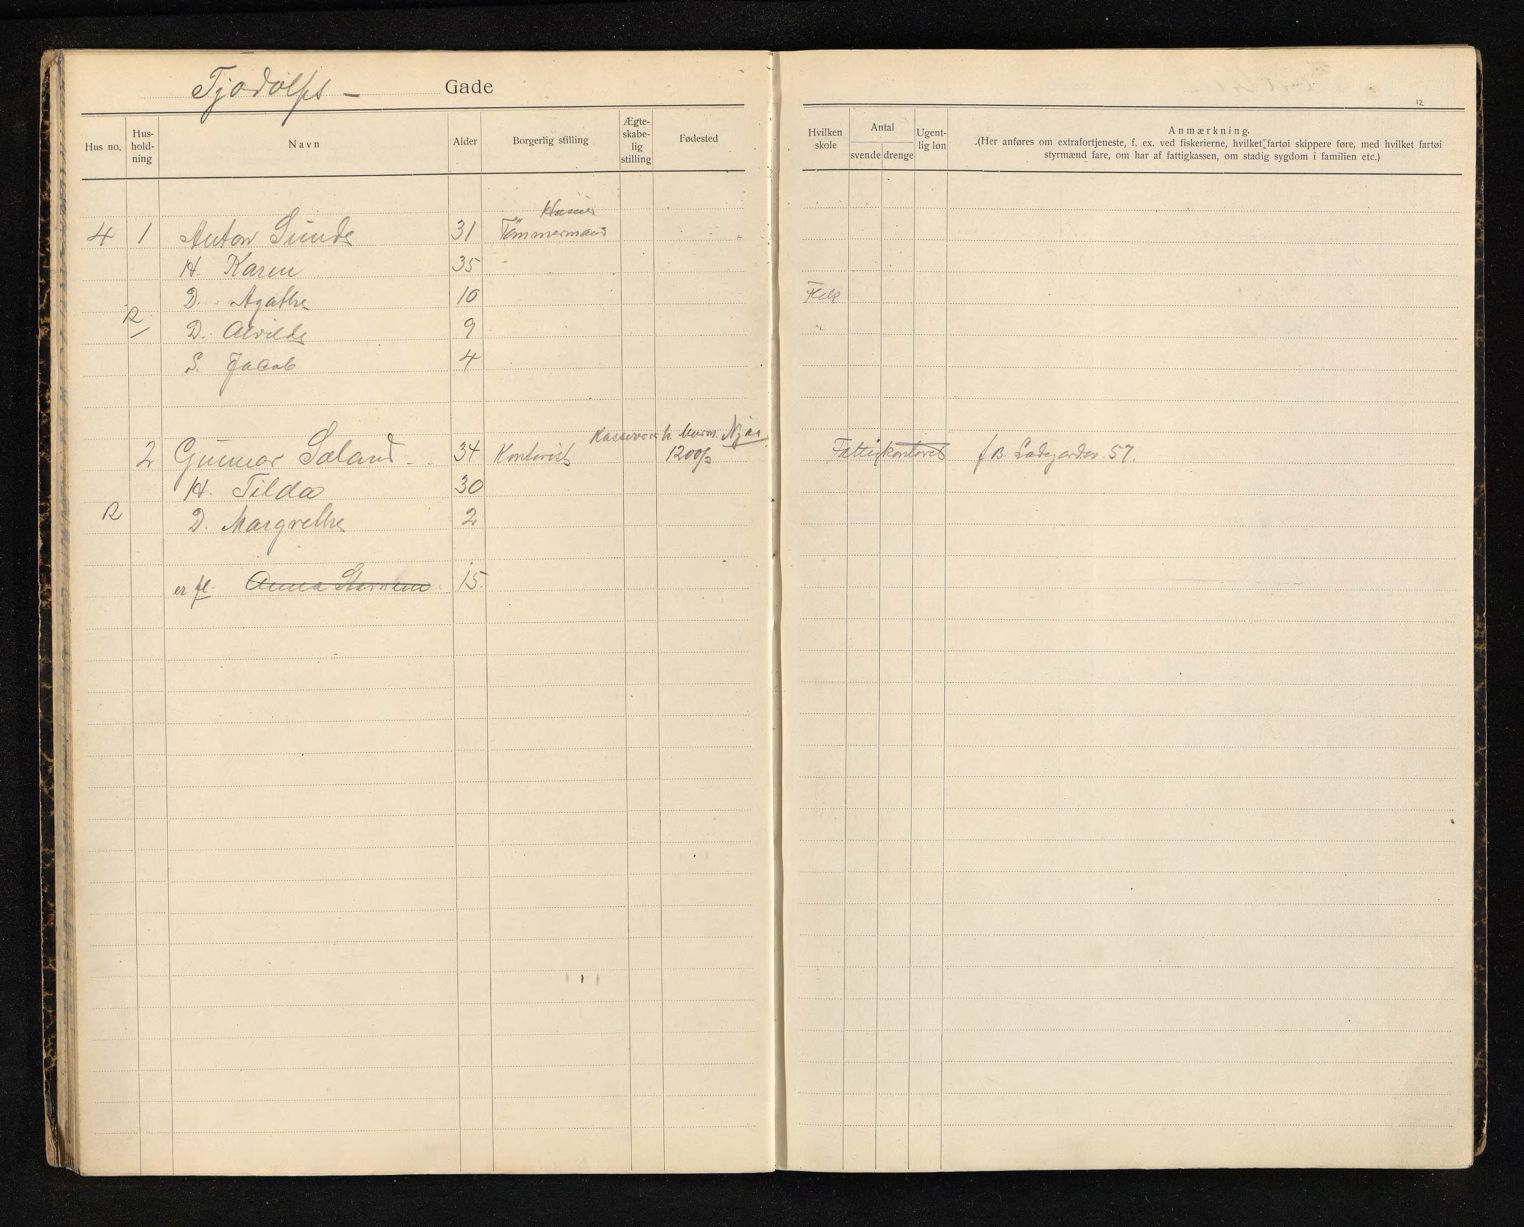 Tjodolfs – Gade
12
Hus no. Hus-hold-ning Navn Alder Borgerlig stilling Ægte-skabe-lig stilling Fødested Hvilken skole Antal svende drenge Ugent-lig løn Anmærkning.
(Her anføres om extrafortjeneste, f. ex. ved fiskerierne, hvilket fartøi skippere føre, med hvilket fartøi
styrmænd fare, om har af fattigkassen, om stadig sygdom i familien etc.)
4 1 Anton Sunde 31 Tømmermand
H. Karen 35
D. Agathe 10 Folk
R D. Alvilde 9 "
S. Jacob 4
2 Gunnar Søland 34 Kontorist 1200/2 Fattigkontoret f B Ladegarden 57.
H. Tilda 30
R D. Margrethe 2
er fl. Anna 15.